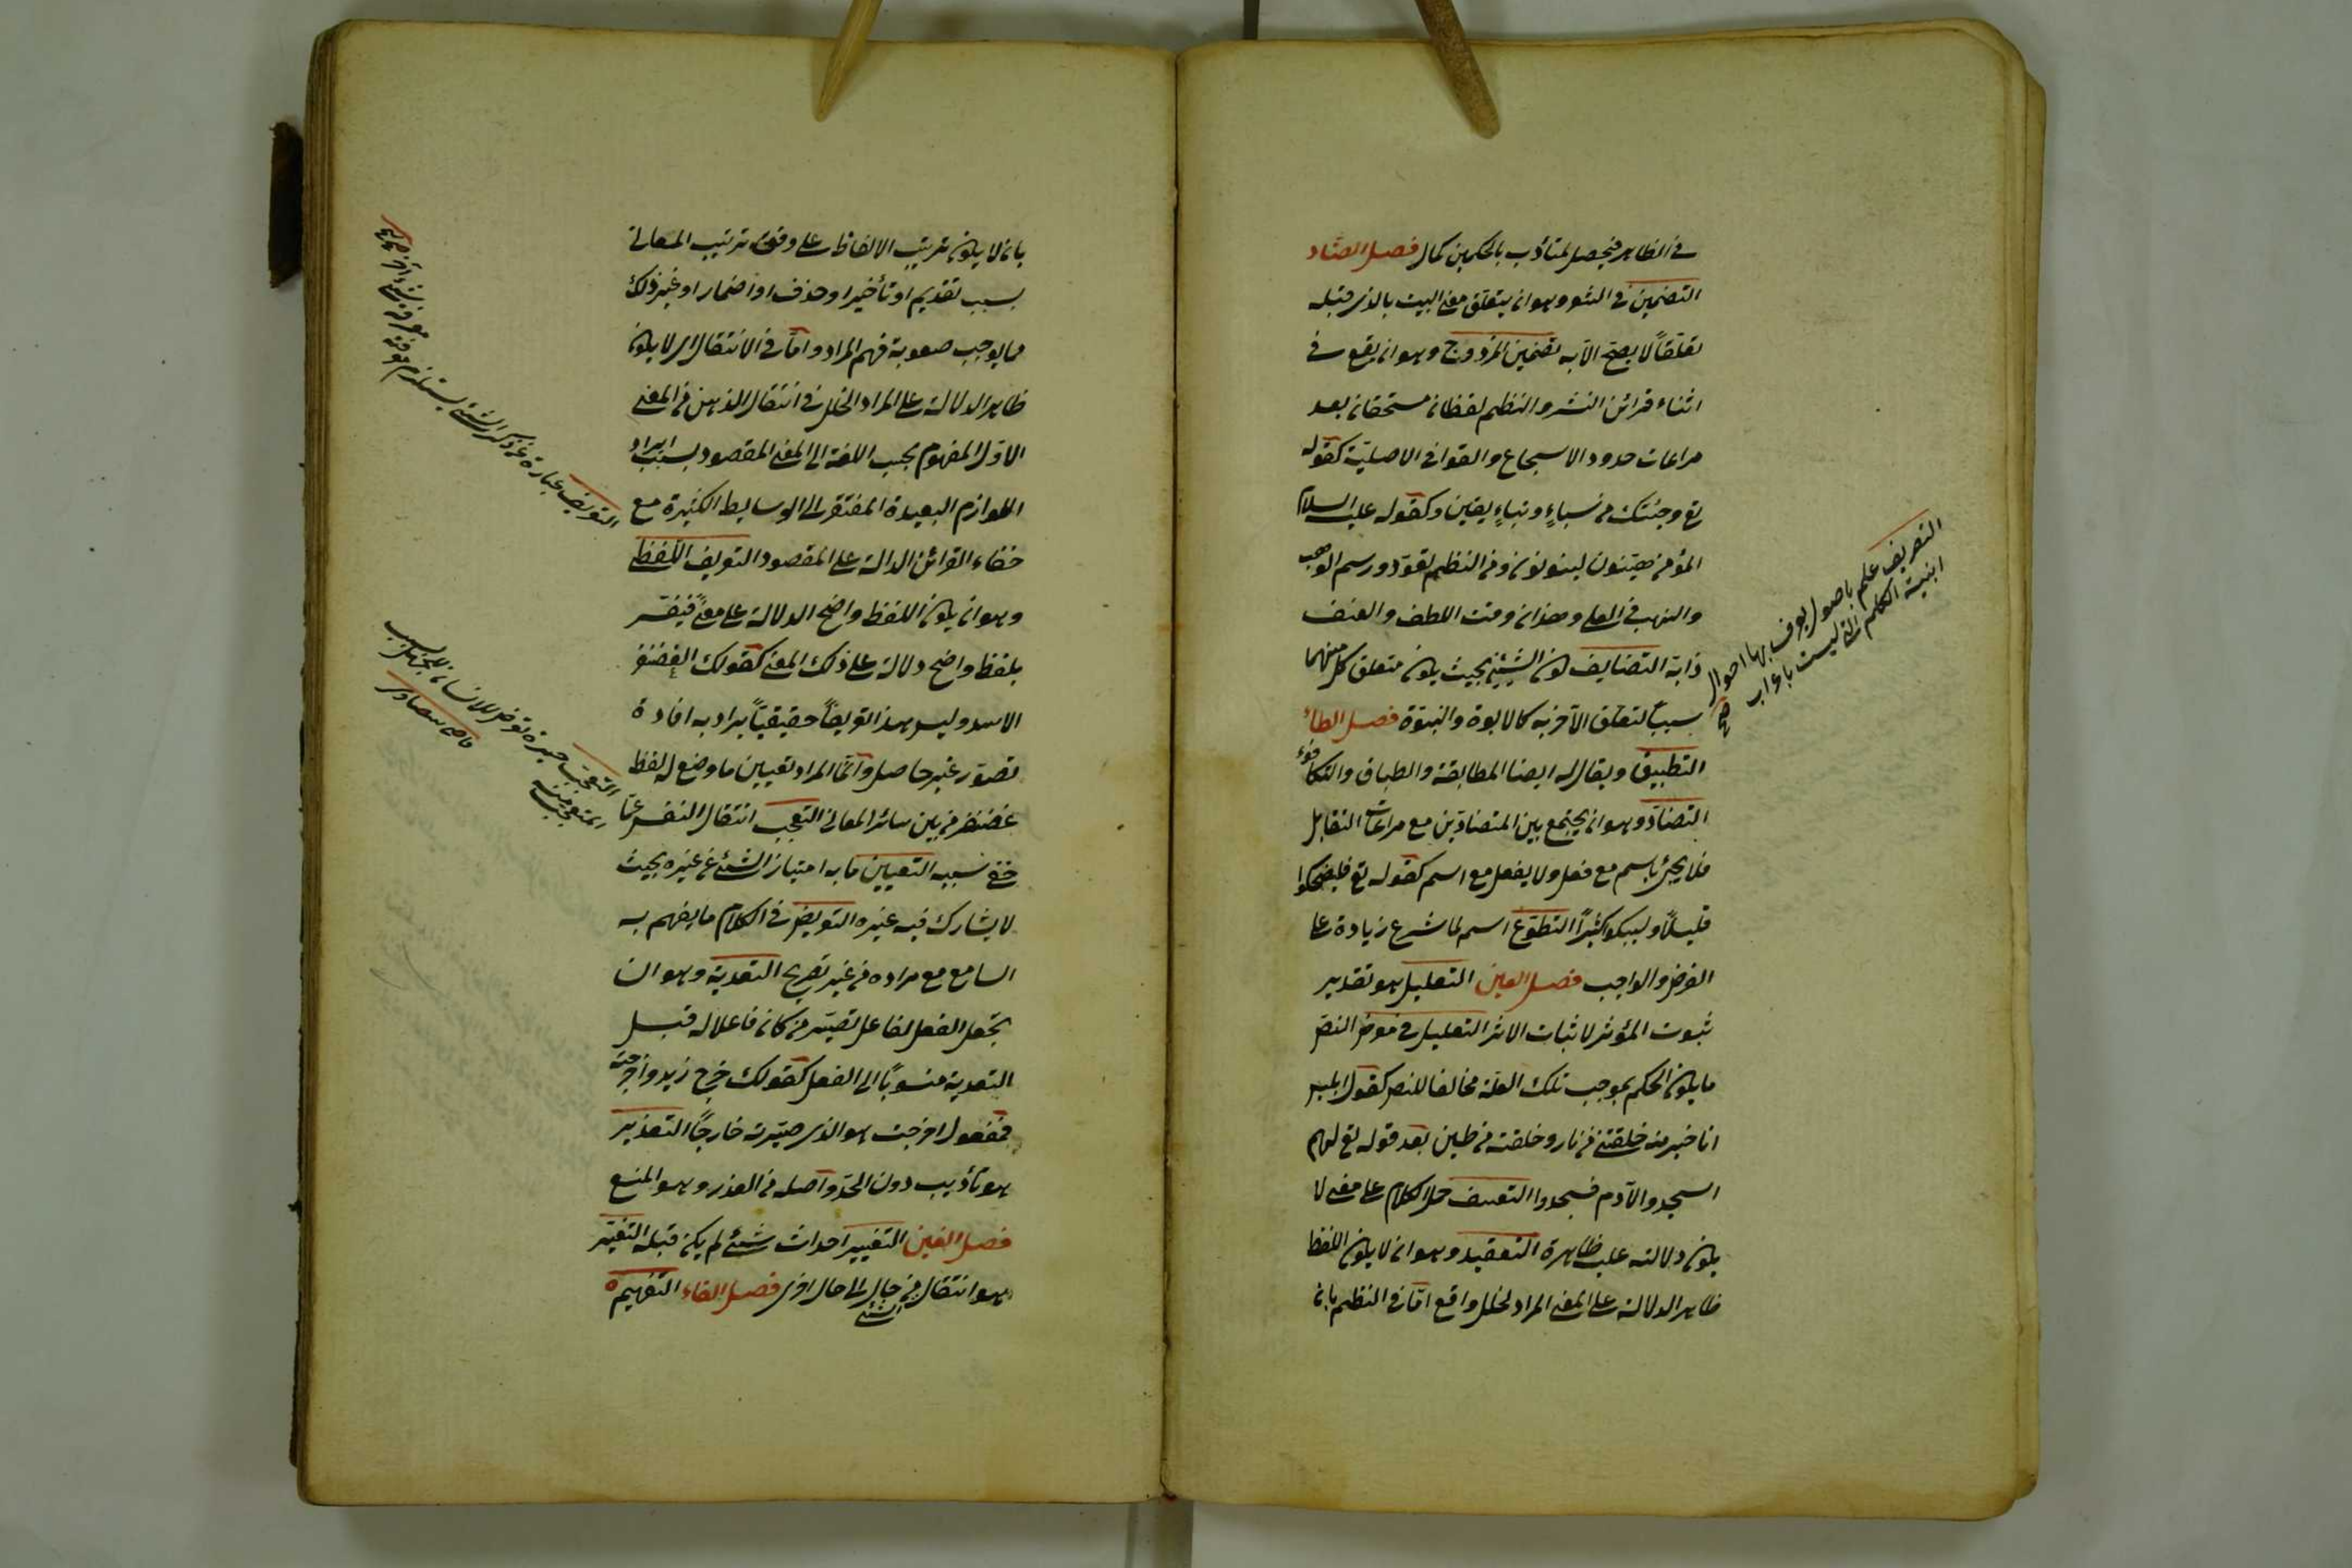 في الظاهر فيحصل لمتأدب بالحكمين كمال فصل الضاد
التضمين في الشعر وهو ان يتعلق معنى البيت بالذي قبله
تعلقاً لا يصح الا به تضمين المزدوج وهو ان يقع في
اثناء قرائن النثر والنظم لفظان مستحقان بعد
مراعات حدود الاسجاع والقوافي الاصلية كقوله
تع وجئتك من سباءٍ ونباءٍ يقين وكقوله عليه السلام
المؤمن هينون لينون ومن النظم تعود ورسم الوهب
والنهب في العلى وهذان وقت اللطف والعنف
دابه التضايف كون الشيئين بحيث يكون متعلق كل منهما
سبباً لتعلق الآخر به كالابوة والبنوة فصل الطاء
التطبيق ويقال له ايضا المطابقة والطباق والتكافؤ
التضاد وهو ان يجتمع بين المتضادين مع مراعات التقابل
فلا يجئ باسم مع فعل ولا بفعل مع اسم كقوله تع فليضحكوا
قليلاً وليبكوا كثيراً التطوع اسم لما شرع زيادة على
الفرض والواجب فصل العين التعليل هو تقدير
ثبوت المؤثر لاثبات الاثر التعليل في معرض النص
ما يكون الحكم بموجب تلك العلة مخالفا للنص كقول ابليس
انا خير منه خلقتني من نار وخلقته من طين بعد قوله تع لهم
اسجدوا لآدم فسجدوا التعسف حمل الكلام على معنى لا
يكون دلالته عليه ظاهرة التعقيد وهو ان لا يكون اللفظ
ظاهر الدلالة على المعنى المراد لخلل واقع اما في النظم بان
التصريف علم باصول يعرف بها احوال
ابنية الكلم التي ليست باعراب
بان لا يكون ترتيب الالفاظ على وفق ترتيب المعاني
بسبب تقديم او تأخير او حذف او اضمار او غير ذلك
مما يوجب صعوبة فهم المراد واما في الانتقال اي لا يكون
ظاهر الدلالة على المراد لخلل في انتقال الذهن من المعنى
الاول المفهوم بحسب اللغة الى المعنى المقصود بسبب ايراد
اللوازم البعيدة المفتقرة الى الوسايط الكثيرة مع
خفاء القرائن الدالة على المقصود التعريف اللفظي
وهو ان يكون اللفظ واضح الدلالة على معنى فيفسر
بلفظ واضح دلالة على ذلك المعنى كقولك الغضنفر
الاسد وليس هذا تعريفاً حقيقياً يراد به افادة
تصور غير حاصل وانما المراد تعيين ما وضع له لفظ
غضنفر من بين سائر المعاني التعجب انتقال النفس عما
خفي سببه التعيين ما به امتياز الشئ عن غيره بحيث
لا يشارك فيه غيره التعريض في الكلام ما يفهم به
السامع مع مراده من غير تصريح التعدية وهو ان
تجعل الفعل لفاعل تصير من كان فاعلا له قبل
التعدية منسوباً الى الفعل كقولك خرج زيد واخرجته
فمفعول اخرجت هو الذي صيرته خارجاً التعذير
هو تأديب دون الحد واصله من العذر وهو المنع
فصل الغين التغيير احداث شئ لم يكن قبله التغير
هو انتقال الشئ من حال الى حال اخرى فصل الفاء التفهيم
التعريف عبارة عن ذكر الشئ يستلزم معرفته معرفة شئ آخر
التعجب حيرة تعرض للانسان